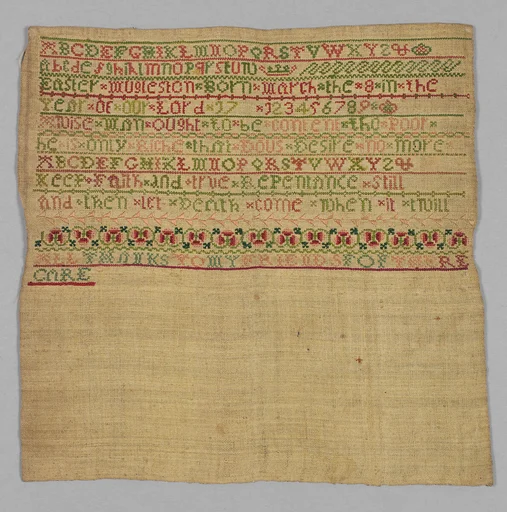 ABCDEFGHIKLMNOPQRSTVWXYZ&
abcdefghiklmnopqrstuw
Easter × Mugleston × Born × March × the × 8 × in × the
Year × of × our × Lord × 17 × 123456789
A × wise × man × ought × to × be × content × tho × Poor ×
he × is × only × Riche × that × Dous × Desire × no × more
ABCDEFGHIKLMNOPQRSTVWXYZ&
Keep × Faith × and × true × Repentance × still
and × then × let × Death × come × when × it × twill
ALL THANKS TO MY FREIND FOR RE
CARE